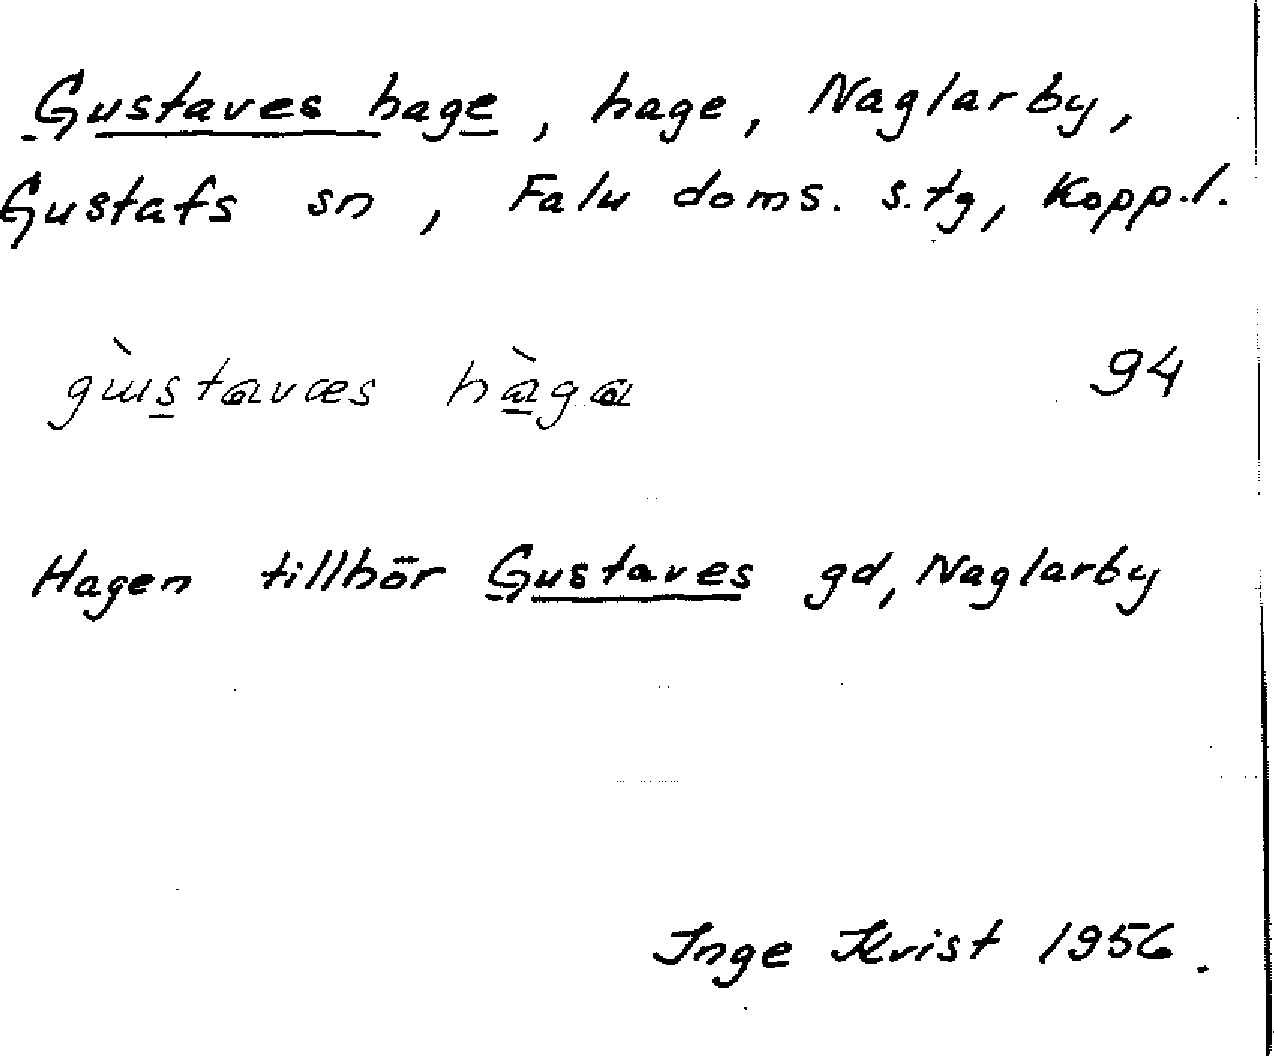 Gustaves hage, hage, Naglarby,
Gustafs sn, Falu doms. s.tg, Kopp.l.
gɯ̀s̲tɑvæs hɑ̲̀gɑ 94
Hagen tillhör Gustaves gd, Naglarby
Inge Kvist 1956.